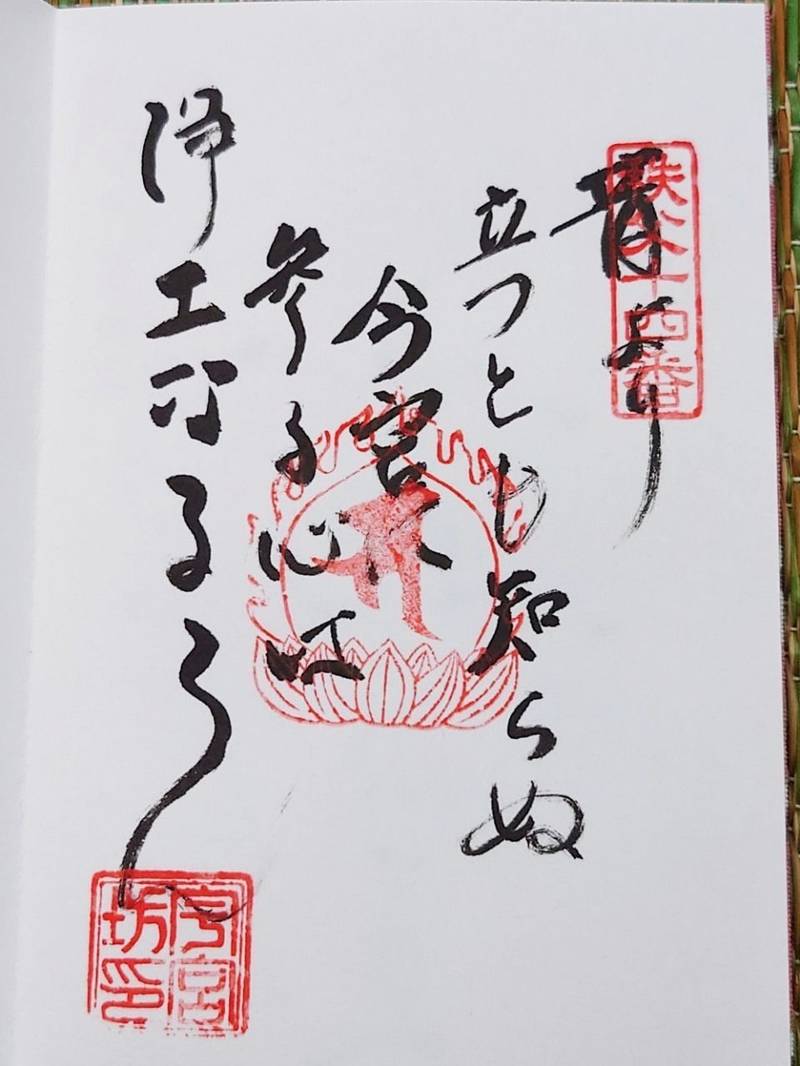 秩父十四番
昔より
立つとも知らぬ
今宮に
参る心は
浄土なるらん
今宮
坊印